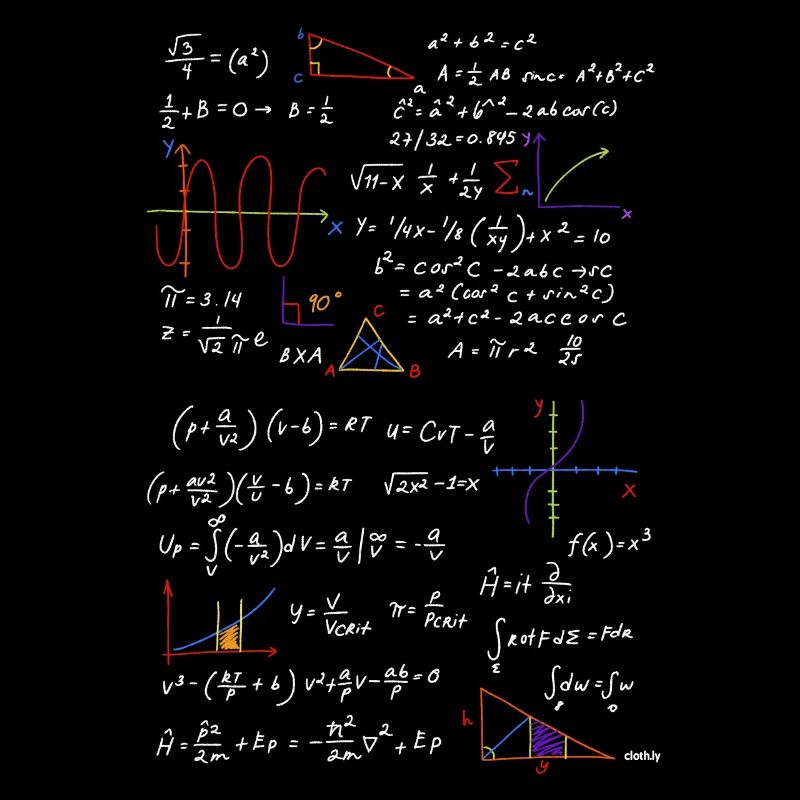 √3/4 = (a²)
b
c
a
a² + b² = c²
A = 1/2 AB sinc = A²+B²+C²
1/2 + B = 0 → B = 1/2
ĉ² = â² + b^² - 2ab cos(c)
27/32 = 0.845
Y
X
√11-x 1/x + 1/2y Σ n
Y
X
Y = 1/4x - 1/8 (1/xy) + x² = 10
b² = cos²C - 2abc → sc
= a² (cos²c + sin²c)
= a² + c² - 2acc os C
π = 3.14
90°
Z = 1/√2π e
BXA
C
A
B
A = πr2 10/25
(p + a/v2) (v - b) = RT
u = CvT - a/v
(p + av2/v2) (v/u - b) = RT
√2x² - 1 = x
y
x
Up = ∫ᵥ^∞ (-a/v²) dV = a/v |∞ v = -a/v
f(x) = x³
Ĥ = it ∂/∂xi
y = V/VCRit
π = P/PCRit
∫Σ Rot F dΣ = FdR
v³ - (RT/P + b) v² + a/P v - ab/P = 0
∫8 dw = ∫0 w
Ĥ = p̂2/2m + EP = - ħ²/2m ∇² + EP
h
y
cloth.ly